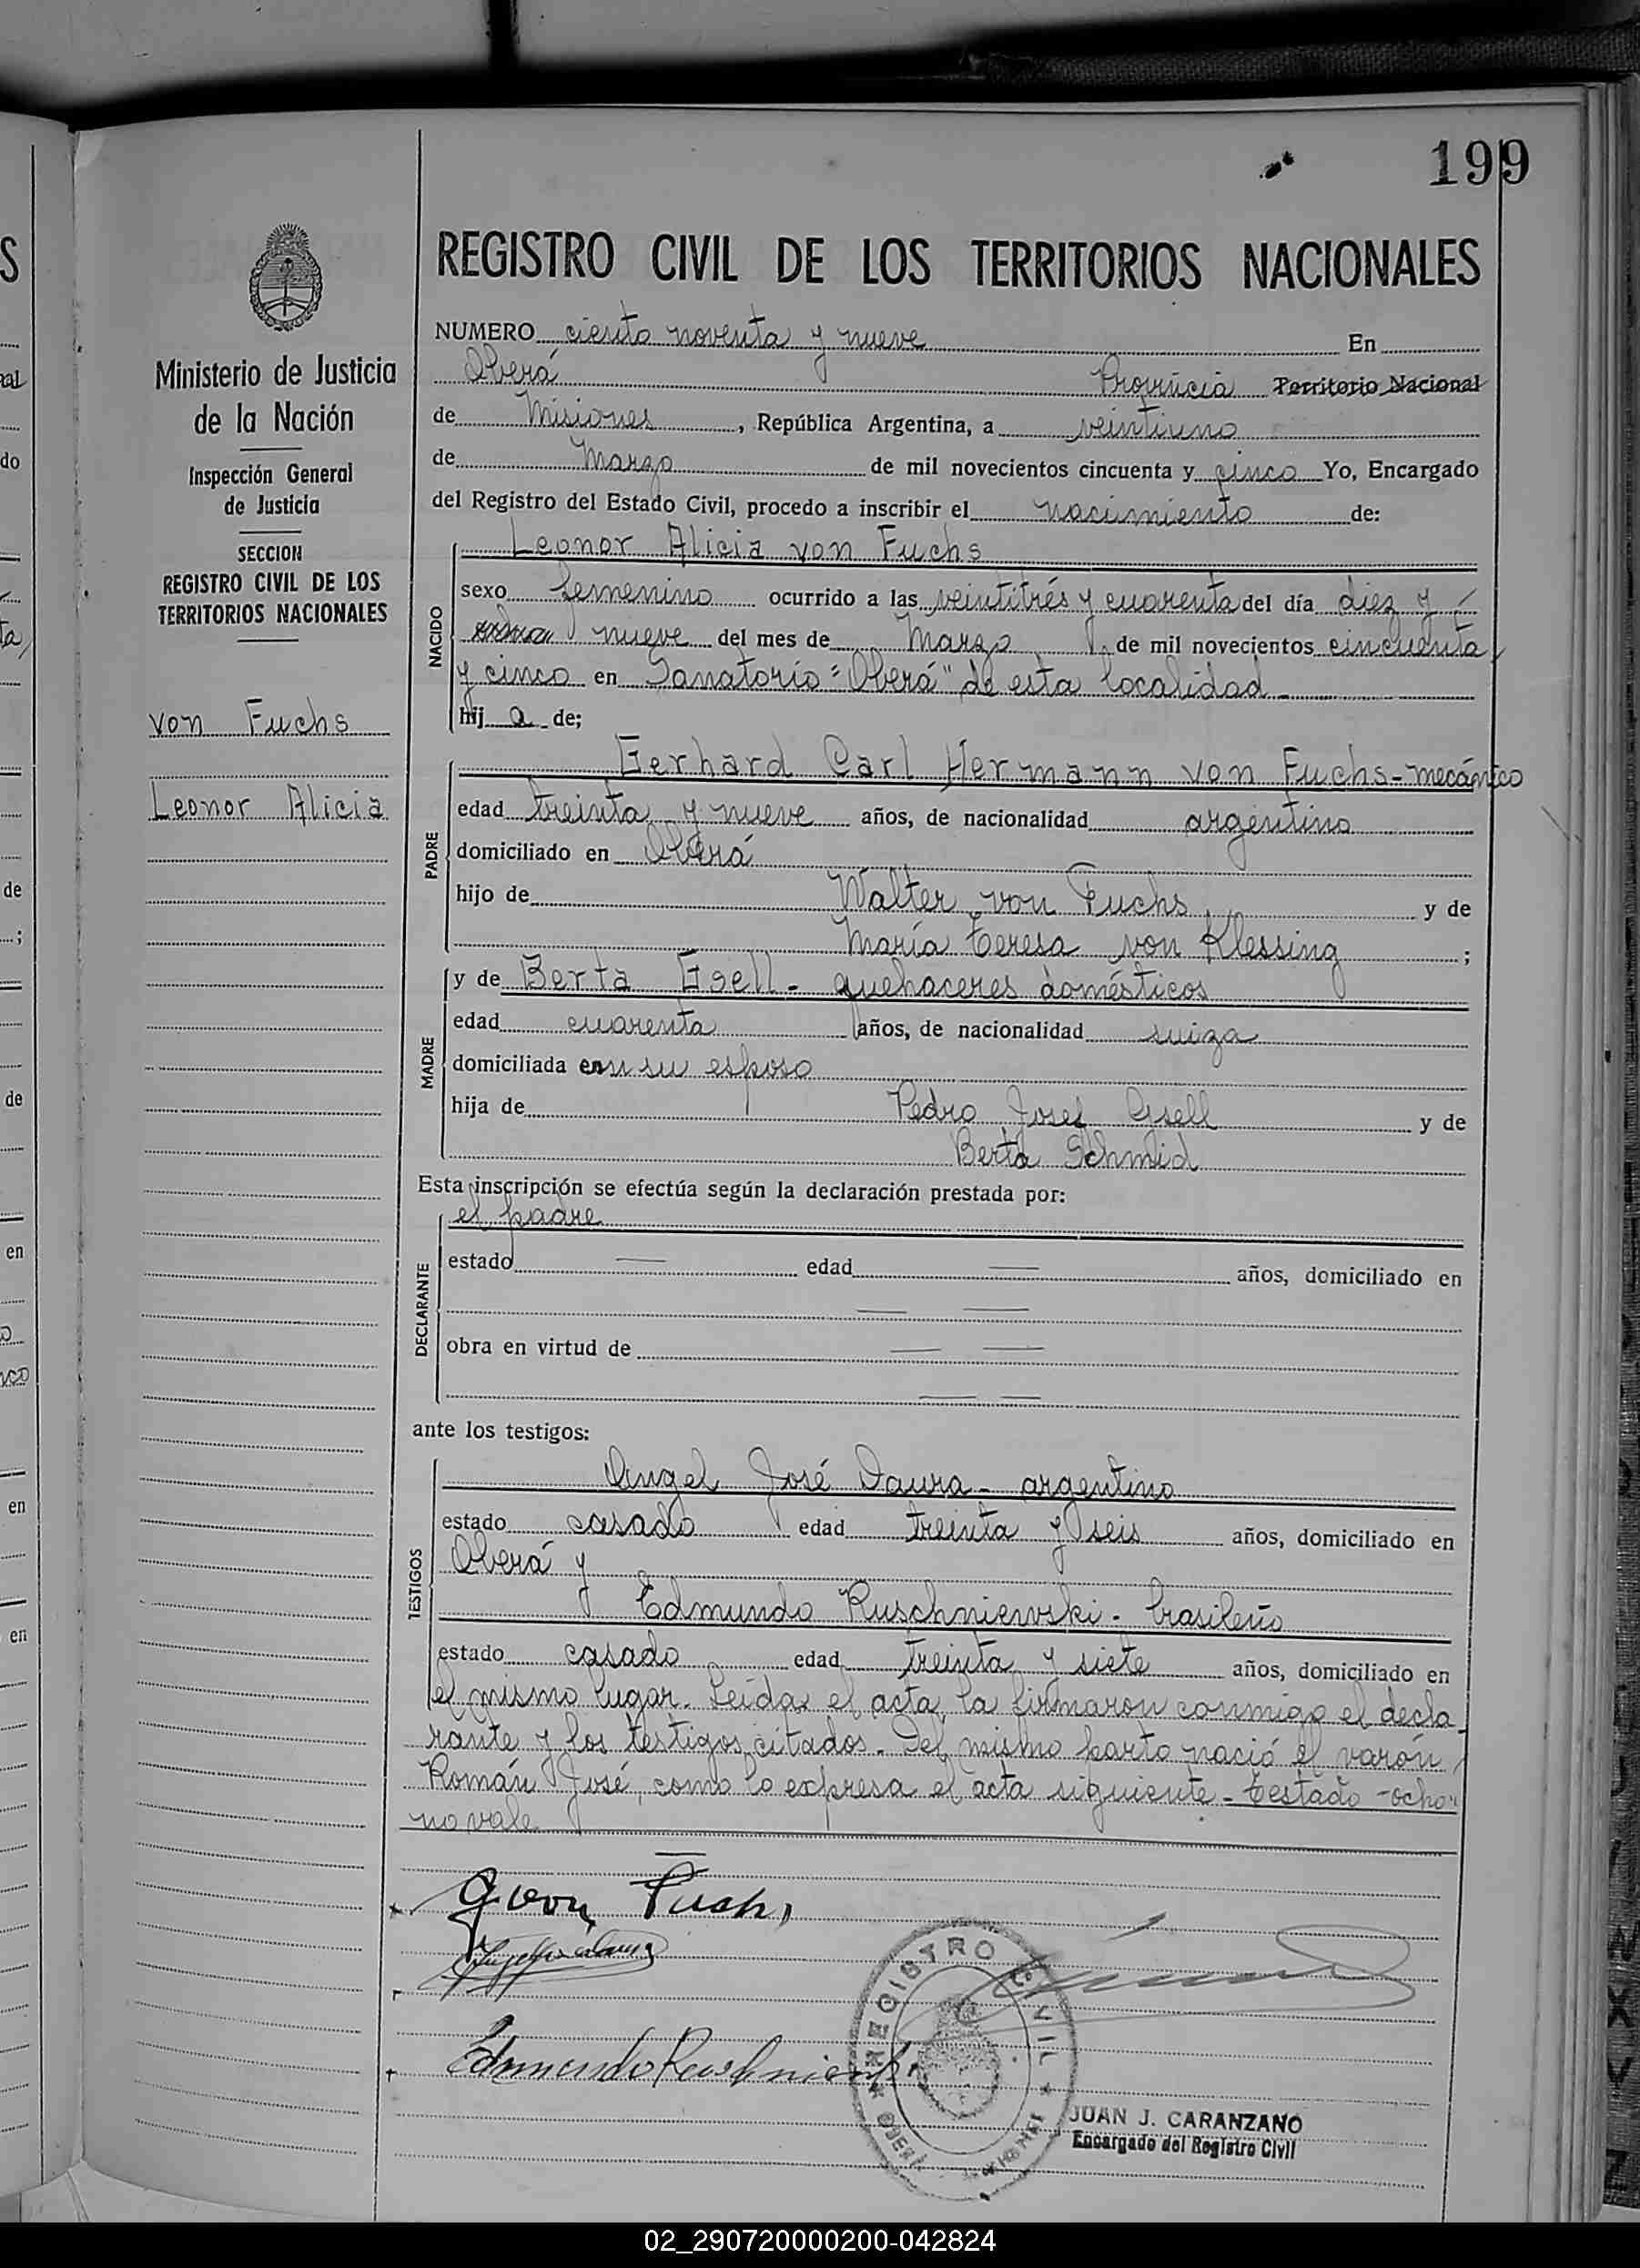 199
REGISTRO CIVIL DE LOS TERRITORIOS NACIONALES
Ministerio de Justicia
de la Nación
Inspección General
de Justicia
SECCION
REGISTRO CIVIL DE LOS
TERRITORIOS NACIONALES
von Fuchs
Leonor Alicia
NUMERO ciento noventa y nueve En
Oberá Provincia Territorio Nacional
de Misiones, República Argentina, a veintiuno
de Marzo de mil novecientos cincuenta y cinco Yo, Encargado
del Registro del Estado Civil, procedo a inscribir el nacimiento de:
NACIDO
Leonor Alicia von Fuchs
sexo femenino ocurrido a las veintitrés y cuarenta del día diez y
nueve del mes de Marzo de mil novecientos cincuenta
y cinco en Sanatorio "Oberá" de esta localidad
hij a de;
PADRE
Gerhard Carl Hermann von Fuchs - mecánico
edad treinta y nueve años, de nacionalidad argentino
domiciliado en Oberá
hijo de Walter von Fuchs y de
María Teresa von Klessing ;
MADRE
y de Berta Gsell - quehaceres domésticos
edad cuarenta años, de nacionalidad suiza
domiciliada en su esposo
hija de Pedro Josef Gsell y de
Berta Schmid
Esta inscripción se efectúa según la declaración prestada por:
DECLARANTE
el padre
estado — edad — años, domiciliado en
— —
obra en virtud de — —
— —
ante los testigos:
TESTIGOS
Angel José Daura - argentino
estado casado edad treinta y seis años, domiciliado en
Oberá y
Edmundo Ruschniewski - brasileño
estado casado edad treinta y siete años, domiciliado en
el mismo lugar. Leída el acta, la firmaron conmigo el decla-
rante y los testigos citados. Del mismo parto nació el varón
Román José, como lo expresa el acta siguiente - Testado - ocho"
no vale
G von Fuchs
Edmundo Ruschniewski
REGISTRO CIVIL
OBERA
JUAN J. CARANZANO
Encargado del Registro Civil
02_290720000200-042824